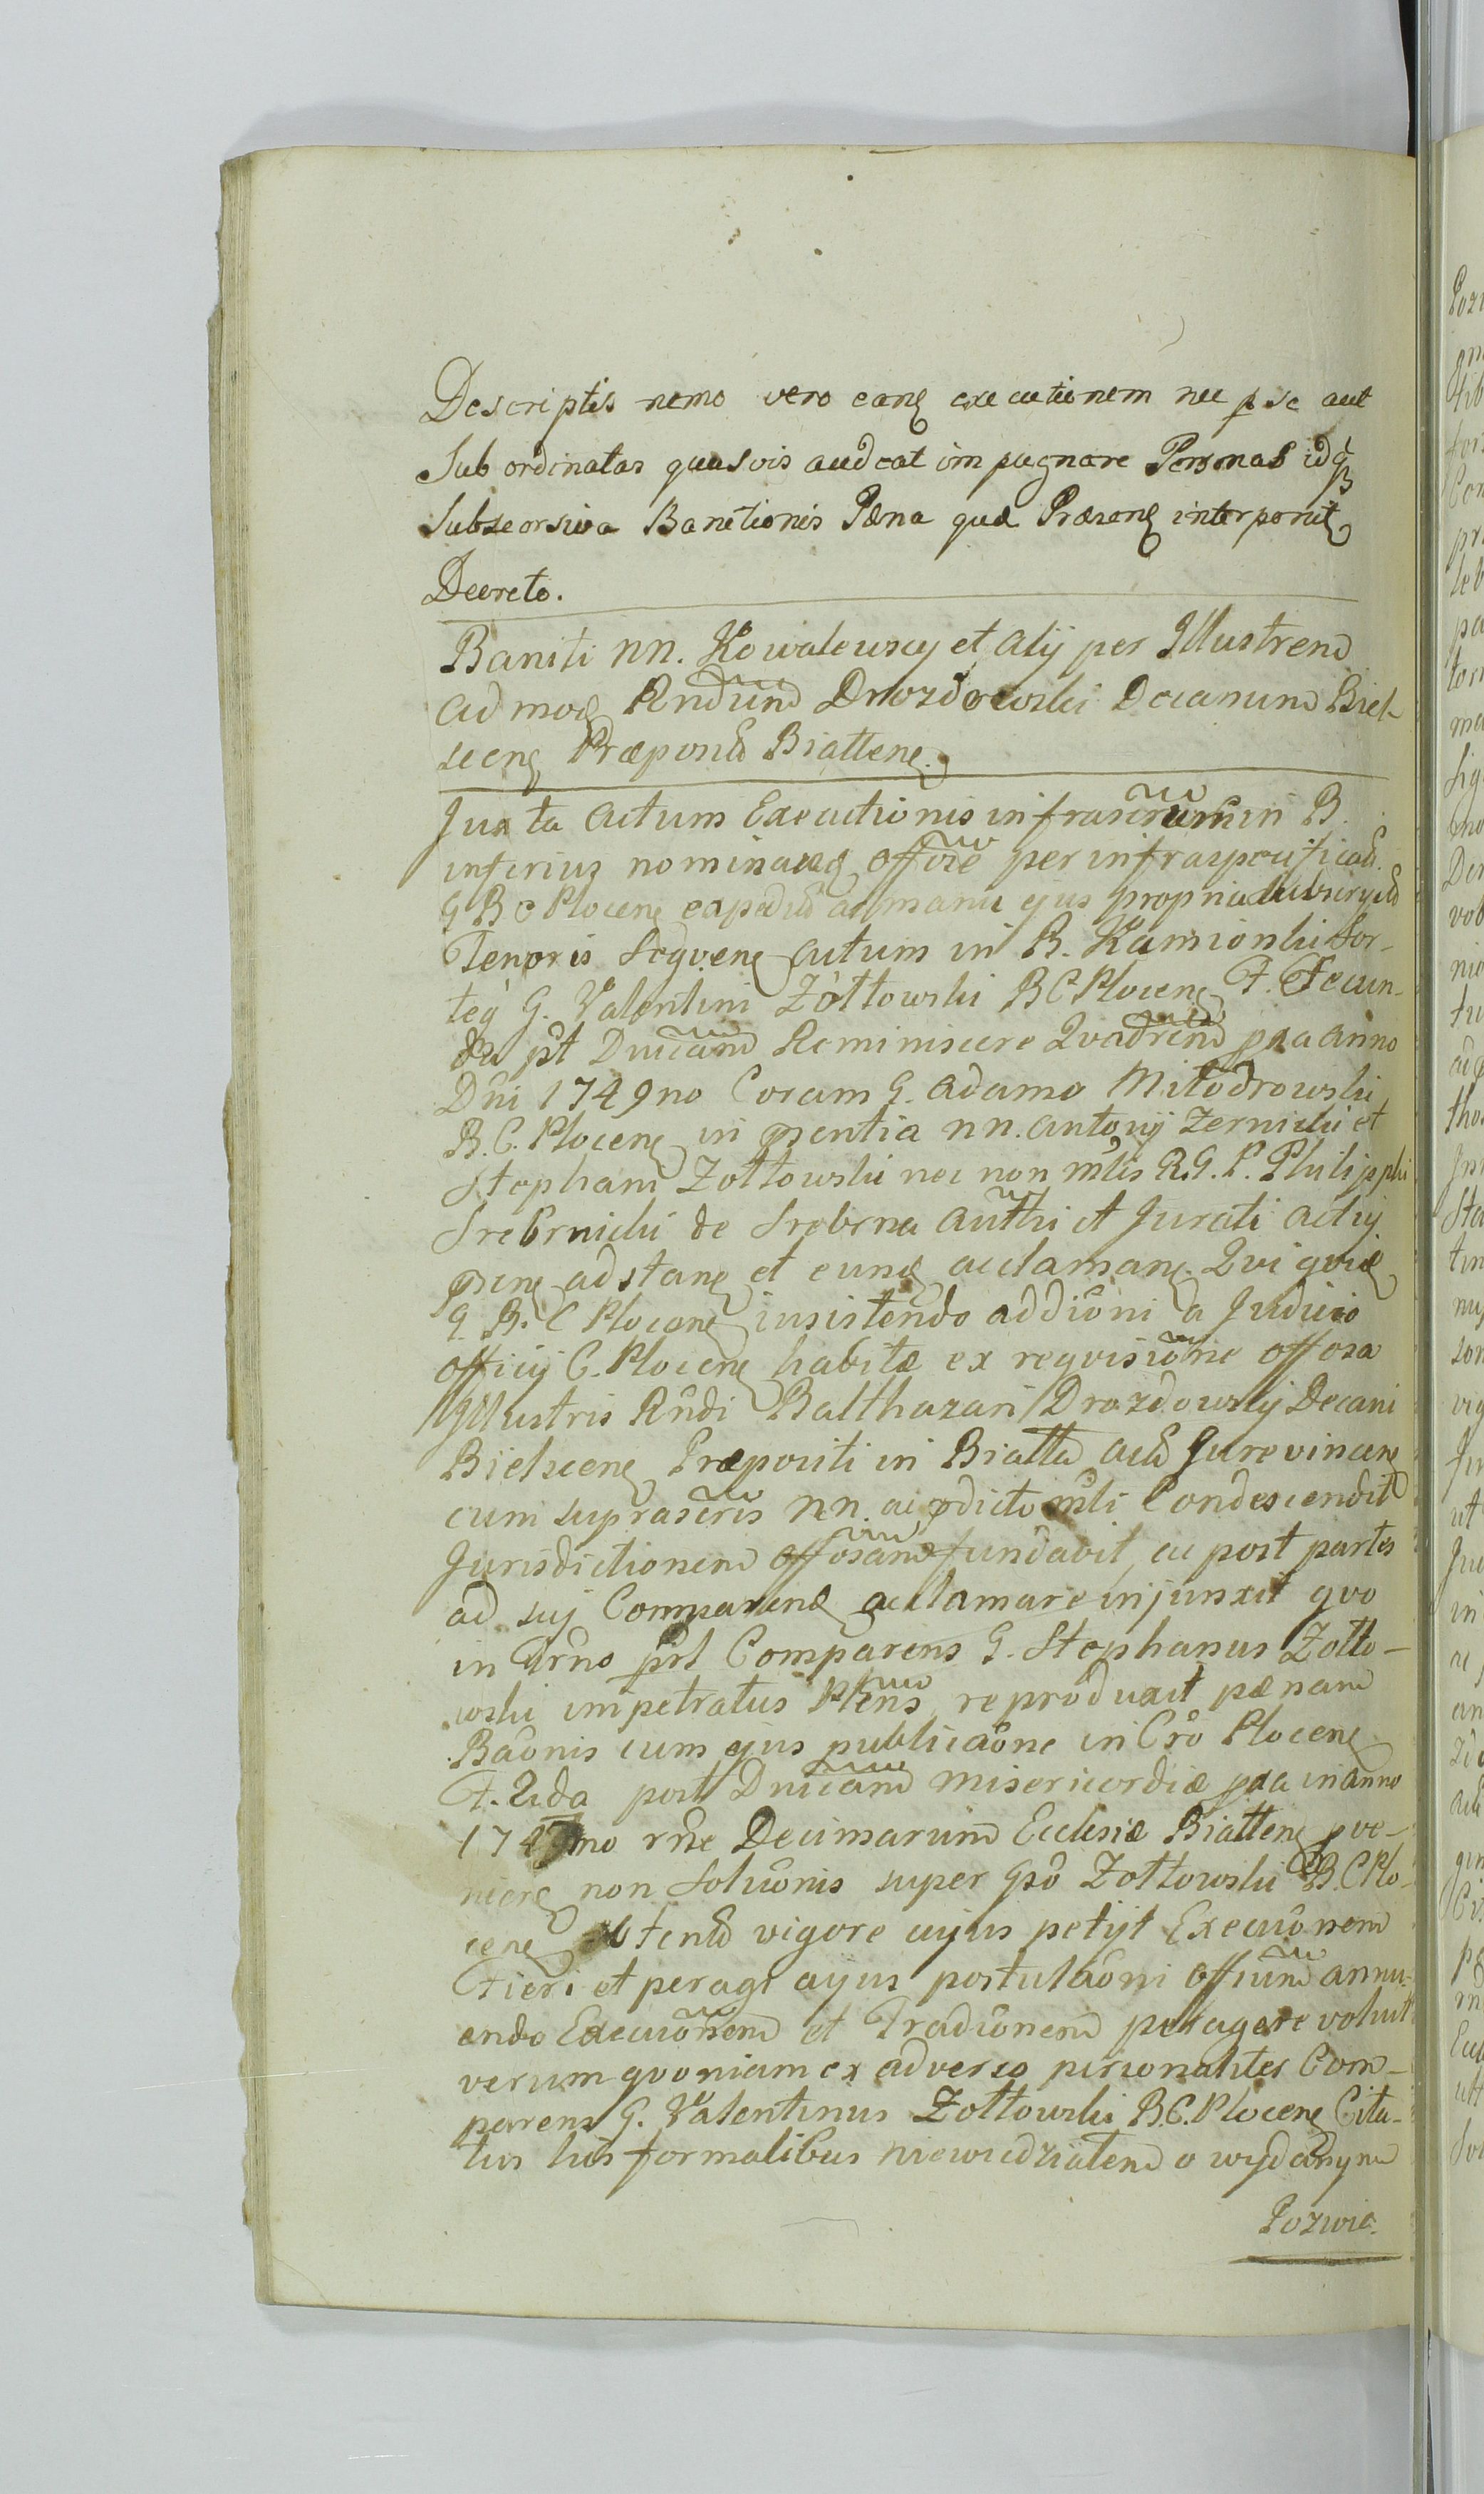 Descriptis nemo vero eang executionem nec p se aut
Sub ordinatas quasvis audeat impugnare Personas idq
Subseorsiva Banitionis Pæna quæ Præseng interponit
Decreto.
Baniti nn. Kowalewscy et alij per Illustrem
ad mod Rndum Drozdowski Decanum Biel-
sceng Præpositd Biattene.
Juxta actum Executionis infrascrum in B.
inferius nominaug offoie per infraspecificad.
G B C Plocene expeditd ac manu ejus propria subscryptd
Tenoris seqvene actum in B. Kamionki Sor-
teg G. Valentini Zołtowski B C Plocene F. Secun-
da pt Dnicam Reminiscere Qvadrem pxa anno
Dni 1749no Coram G. Adamo Miłodrowski
B. C. Plocene in pzentia nn. Antonij Zernicki et
Stephani Zołtowski nec non mlis R. G. P. Philipphi
Srebrnicki de Srebrna authi et Jurati actuj
pzene adstane et eund acclamane. Qvi qvid
G. B. C Plocene insistendo addiôni a Judicio
officij C. Plocene habitæ ex reqvisiône offosa
Illustris Rndi Balthazari Drozdowskij Decani
Bielscene Præpositi in Biatta actu Jure vincene
cum suprascris nn. ac pdicto mli Condescendit
Jurisdictionem offosam fundavit, ac post partes
ad suj Comparend acclamare injunxit qvo
in Trno prl Comparens G. Stephanus Zołto-
wski impetratus Plens reproduxit pænam
Baônis cum ejus publicaône in Cro Plocene
F. 2da post Dnicam Misericordiæ pxa in anno
1747mo rne Decimarum Ecclesiæ Biattene pve-
niene non Soluônis super Gso Zołtowski B. C Plo-
cene obtentd vigore cujus petijt Execuônem
Fieri et peragi cujus postulaôni offium annu-
endo Execuônem et Tradiônem peragere voluit
verum qvoniam ex adverso personaliter Com-
parens G. Valentinus Zołtowski B. C. Plocene Cita-
tus his formalibus niewiedziałem o wydanym
Pozwie.